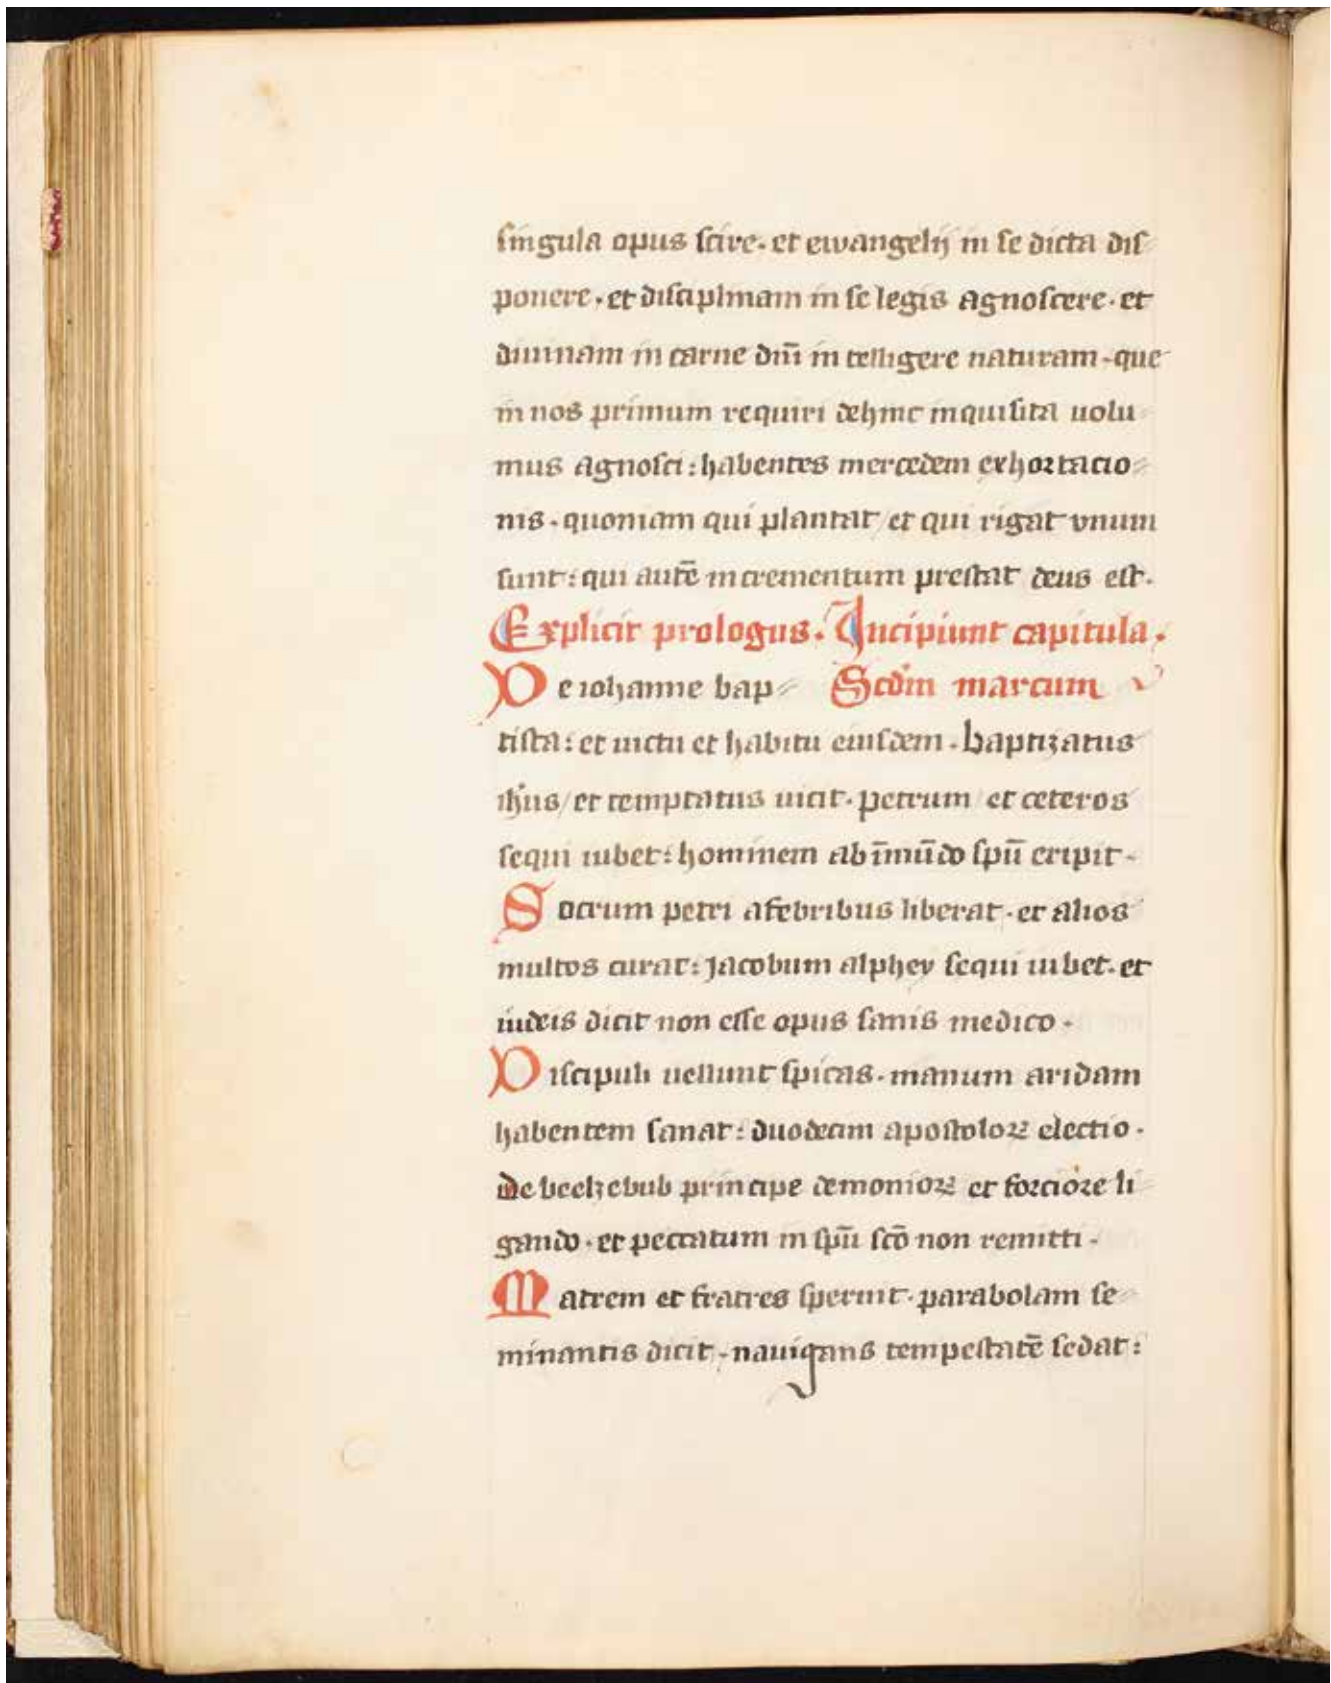 singula opus scire. et ewangelij in se dicta dis
ponere. et disciplinam in se legis agnoscere. et
diuinam in carne dn̄i intelligere naturam. que
in nos primum requiri dehinc inquisita uolu
mus agnosci: habentes mercedem exhortacio
nis. quoniam qui plantat / et qui rigat vnum
sunt: qui autē incrementum prestat deus est.
Explicit prologus. Incipiunt capitula.
De iohanne bap Scd̄m marcum
tista: et uictu et habitu eiusdem. baptizatus
ih̄us / et temptatus uicit. petrum / et ceteros
sequi iubet: hominem ab īmūdo spū eripit.
Socrum petri afebribus liberat. et alios
multos curat: Jacobum alphey sequi iubet. et
iudeis dicit non esse opus sanis medico.
Discipuli uellunt spicas. manum aridam
habentem sanat: duodecim apostoloꝝ electio.
De beelzebub principe demonioꝝ et forciore li
gando. et peccatum in spū scō non remitti.
Matrem et fratres spernit. parabolam se
minantis dicit. nauigans tempestatē sedat: